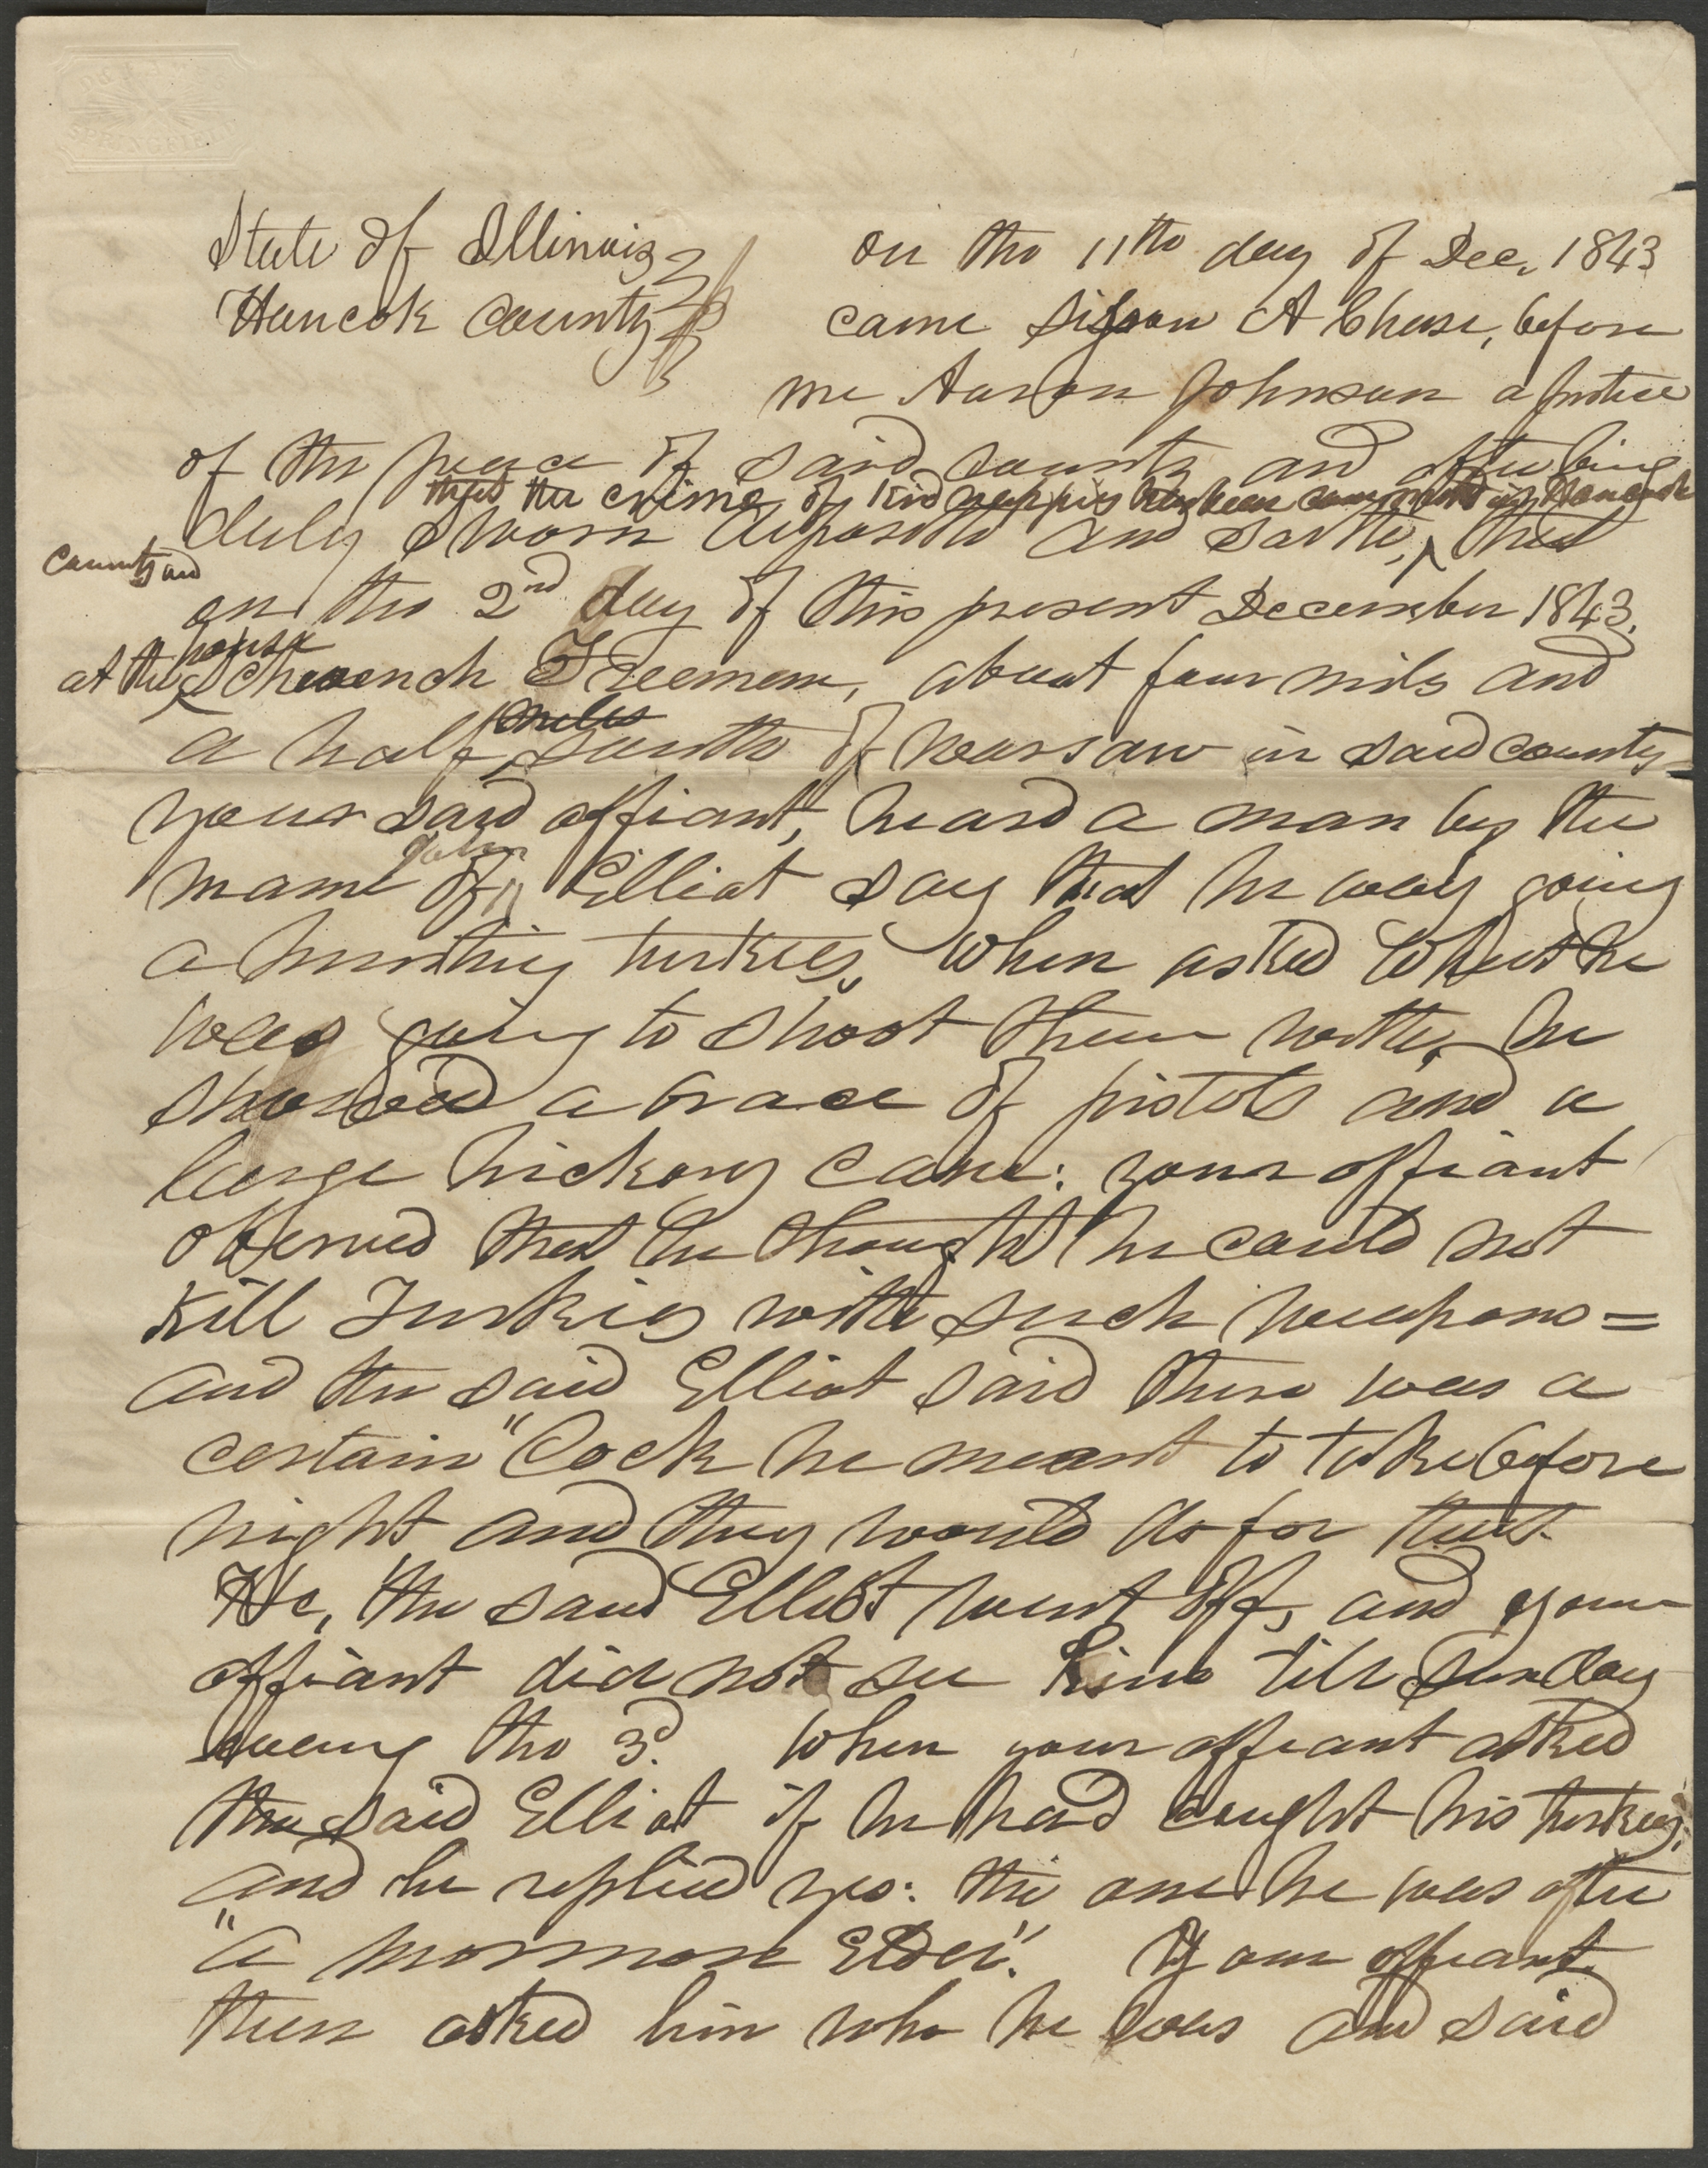 State of Illinois
Hancok county
on the 11th day of Dec. 1843
came Sisson A Chase, before
me Aaron Johnson a justice
of the peace of said county and after being
that the crime of kidnapping has been committed in Hancock
duly sworn deposeth and saith, ^ that
county and
on the 2nd day of this present December 1843.
house
at the ^ Schrench Freeman, about four mils and
miles
a half, south of Warsaw in said county=
your said affiant, heard a man by the
John
name of ^ Elliot say that he was going
a hunting turkies, When asked what he
was going to shoot them with, he
showed a brace of pistols and a
large hickory cane: your affiant
observed that he thought he could not
kill Turkies with such weapons=
and the said Elliot said there was a
certain "Cock he meant to take before
night and they would do for that.
He, the said Elliot went off, and your
affiant did not see him till Sunday
evening the 3d. When your affiant asked
the said Elliot if he had caught his turkies,
and he replied yes: the one he was after
"a mormon Elder". Your affiant
then asked him who he was and said